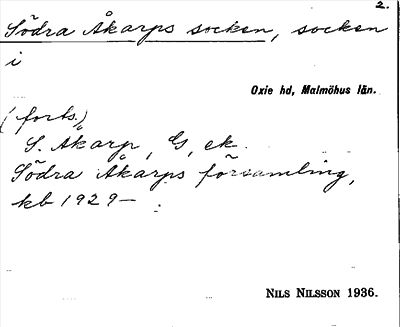 2.
Södra Åkarps socken, socken
i
Oxie hd, Malmöhus län.
(forts.)
S. Åkarp, G, ek.
Södra Åkarps församling,
kb 1929– :
NILS NILSSON 1936.